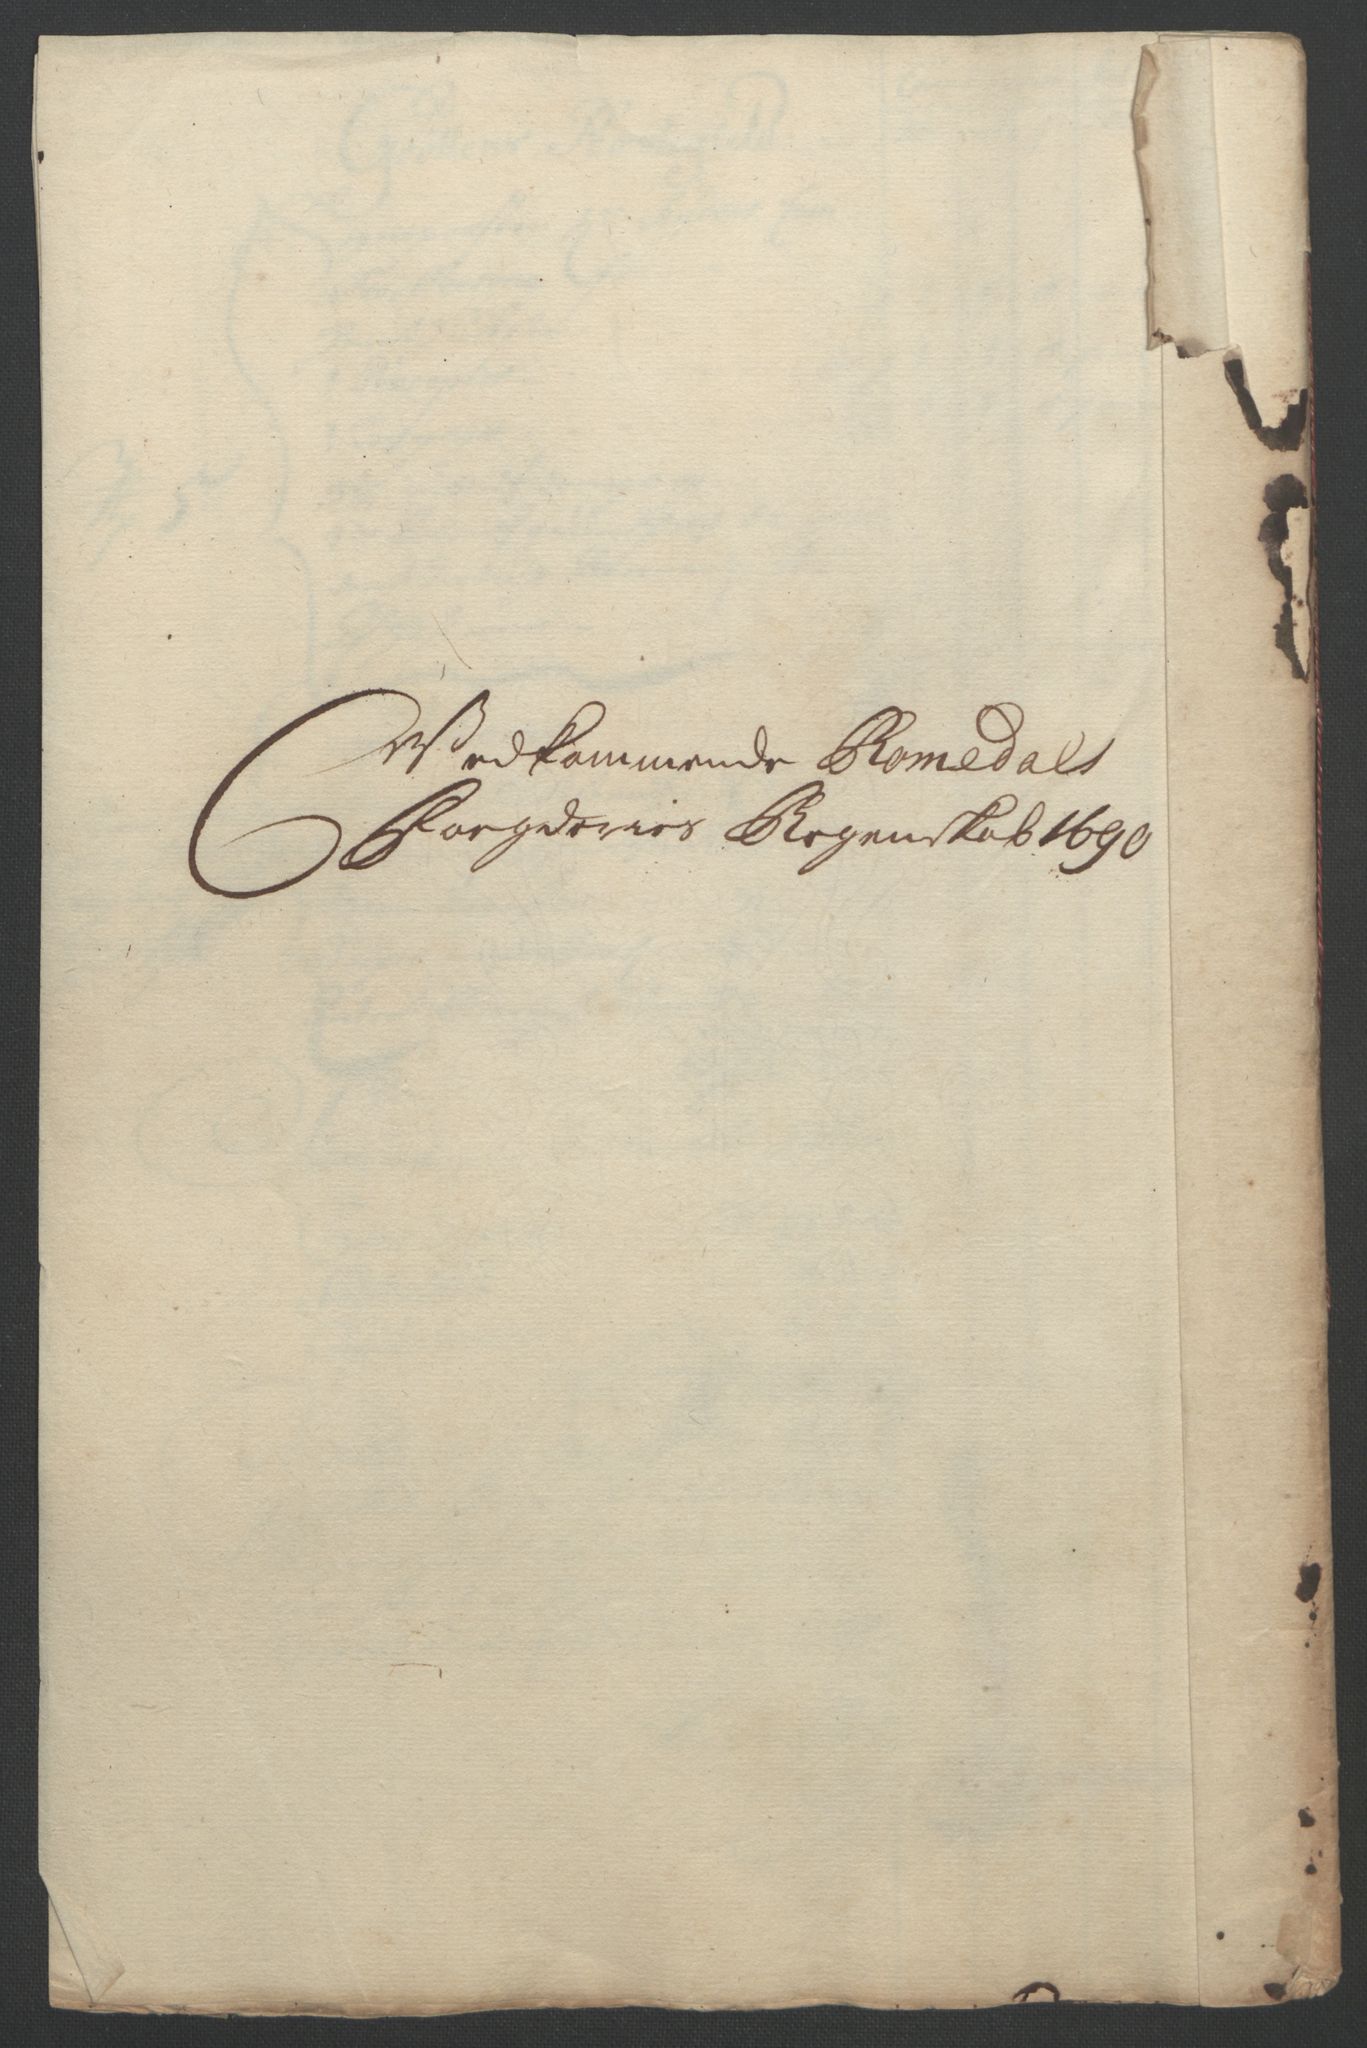 Vedkommende Romsdals
Foegderies Regenskab 1690